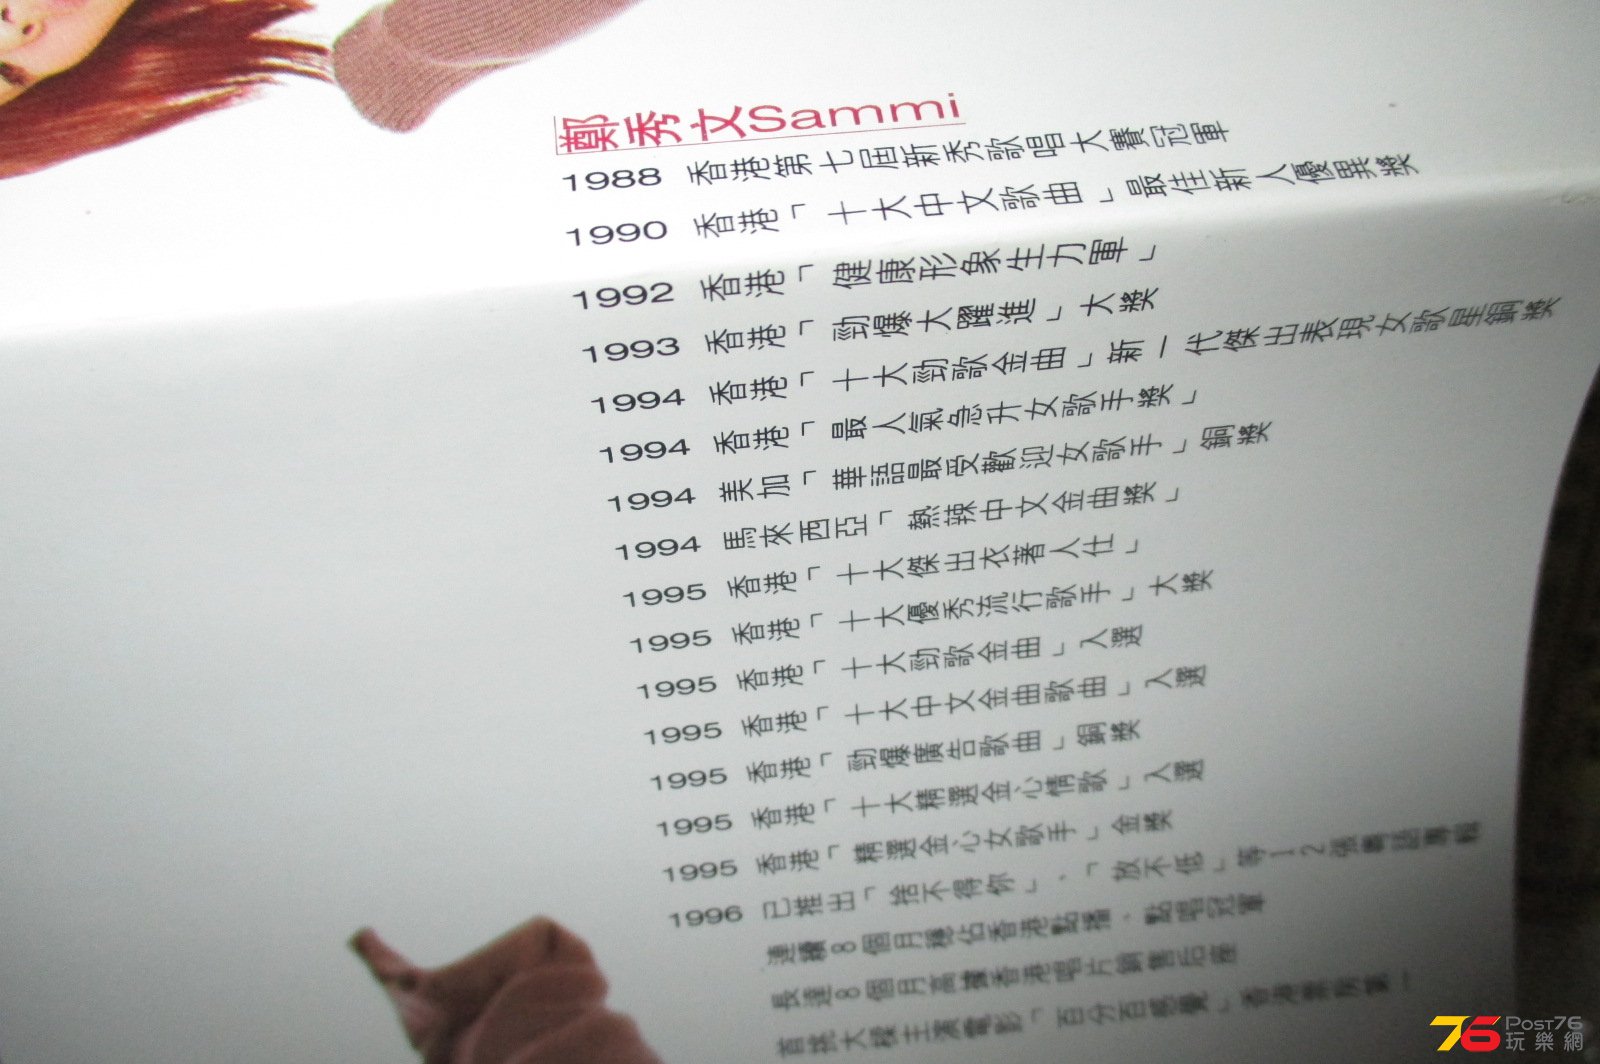 鄭秀文Sammi
1988 香港第七屆新秀歌唱大賽冠軍
1990 香港「十大中文歌曲」最佳新人優異獎
1992 香港「健康形象生力軍」
1993 香港「勁爆大躍進」大獎
1994 香港「十大勁歌金曲」新一代傑出表現女歌星銅獎
1994 香港「最人氣急升女歌手獎」
1994 美加「華語最受歡迎女歌手」銅獎
1994 馬來西亞「熱辣中文金曲獎」
1995 香港「十大傑出衣著人仕」
1995 香港「十大優秀流行歌手」大獎
1995 香港「十大勁歌金曲」入選
1995 香港「十大中文金曲歌曲」入選
1995 香港「勁爆廣告歌曲」銅獎
1995 香港「十大精選金心情歌」入選
1995 香港「精選金心女歌手」金獎
1996 已推出「捨不得你」、「放不低」等12張粵語專輯
連續8個月穩佔香港點播、點唱冠軍
長達8個月高據香港唱片銷售后座
首部大樑主演電影「百分百感覺」香港票房第一
76 POST76
玩樂網